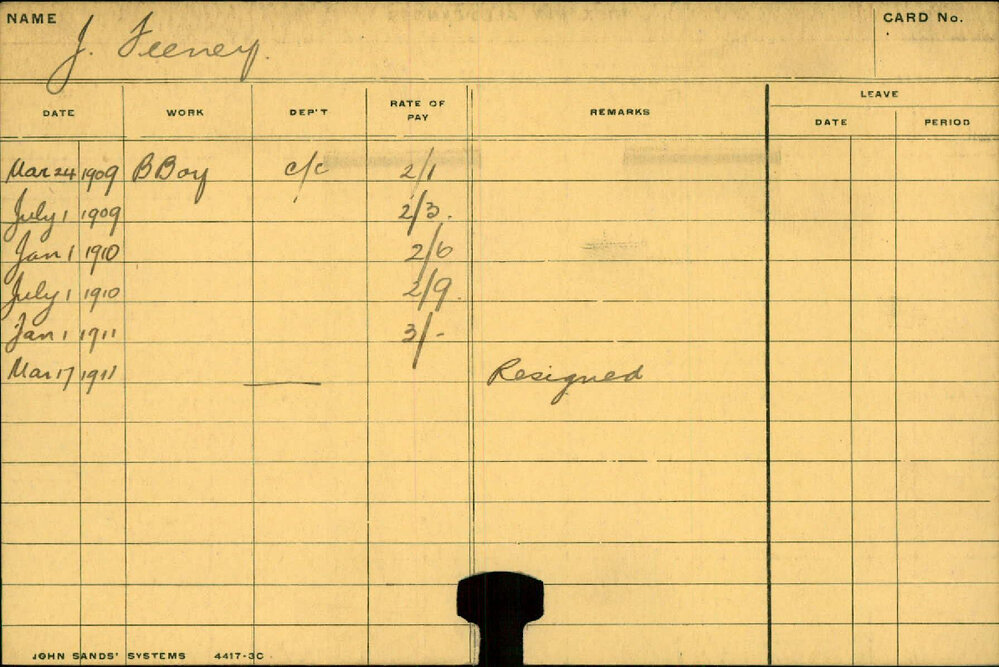 NAME J. Feeney. CARD No.
LEAVE
DATE WORK DEP'T RATE OF PAY REMARKS DATE PERIOD
Mar 24 1909 B Boy c/c 2/1
July 1 1909 2/3.
Jan 1 1910 2/6
July 1 1910 2/9.
Jan 1 1911 3/-
Mar 17 1911 Resigned
JOHN SANDS' SYSTEMS 4417-3C